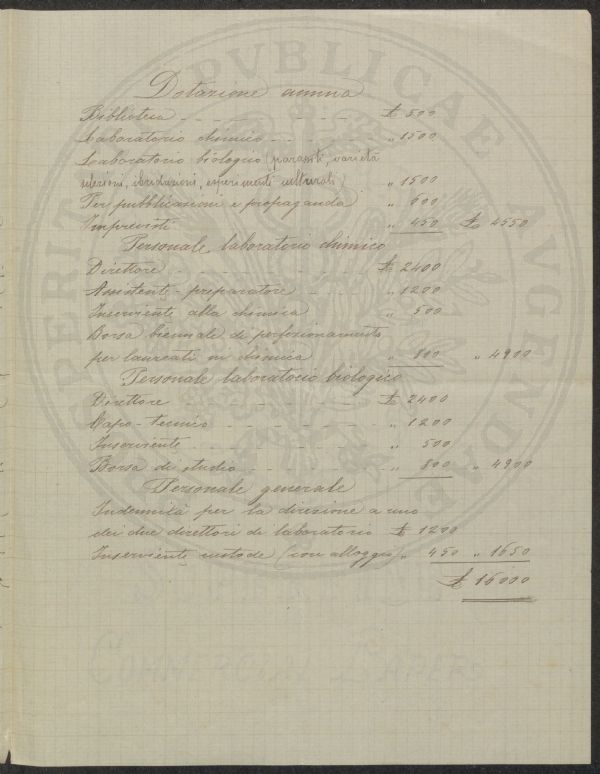 Dotazione annua
Biblioteca - - - - - - - £ 500
Laboratorio chimico - - - - - - " 1500
Laboratorio biologico (parassiti, varietà
selezioni, ibridazioni, esperimenti culturali) " 1500
Per pubblicazioni e propaganda " 600
Imprevisti " 450 £ 4550
Personale laboratorio chimico
Direttore - - - - - - - £ 2400
Assistente-preparatore - - - - " 1200
Inserviente alla chimica " 500
Borsa biennale di perfezionamento
per laureati in chimica " 800 " 4900
Personale laboratorio biologico
Direttore - - - - - - £ 2400
Capo-tecnico - - - - - - " 1200
Inserviente - - - - - - " 500
Borsa di studio - - - - - " 800 " 4900
Personale generale
Indennità per la direzione a uno
dei due direttori di laboratorio £ 1200
Inserviente custode (con alloggio) " 450 " 1650
£ 16000
PVBLICAE
AVGENDAE
COMMERCIAL PAPERS